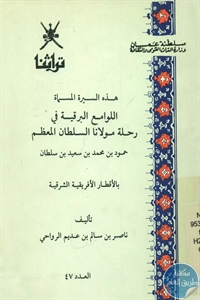 سلطنة عمان
وزارة التراث القومي والثقافة
تراثنا
هذه السيرة المسماة
اللوامع البرقية في
رحلة مولانا السلطان المعظم
حمود بن محمد بن سعيد بن سلطان
بالأقطار الأفريقية الشرقية
تأليف
ناصر بن سالم بن عديم الرواحي
العدد ٤٧